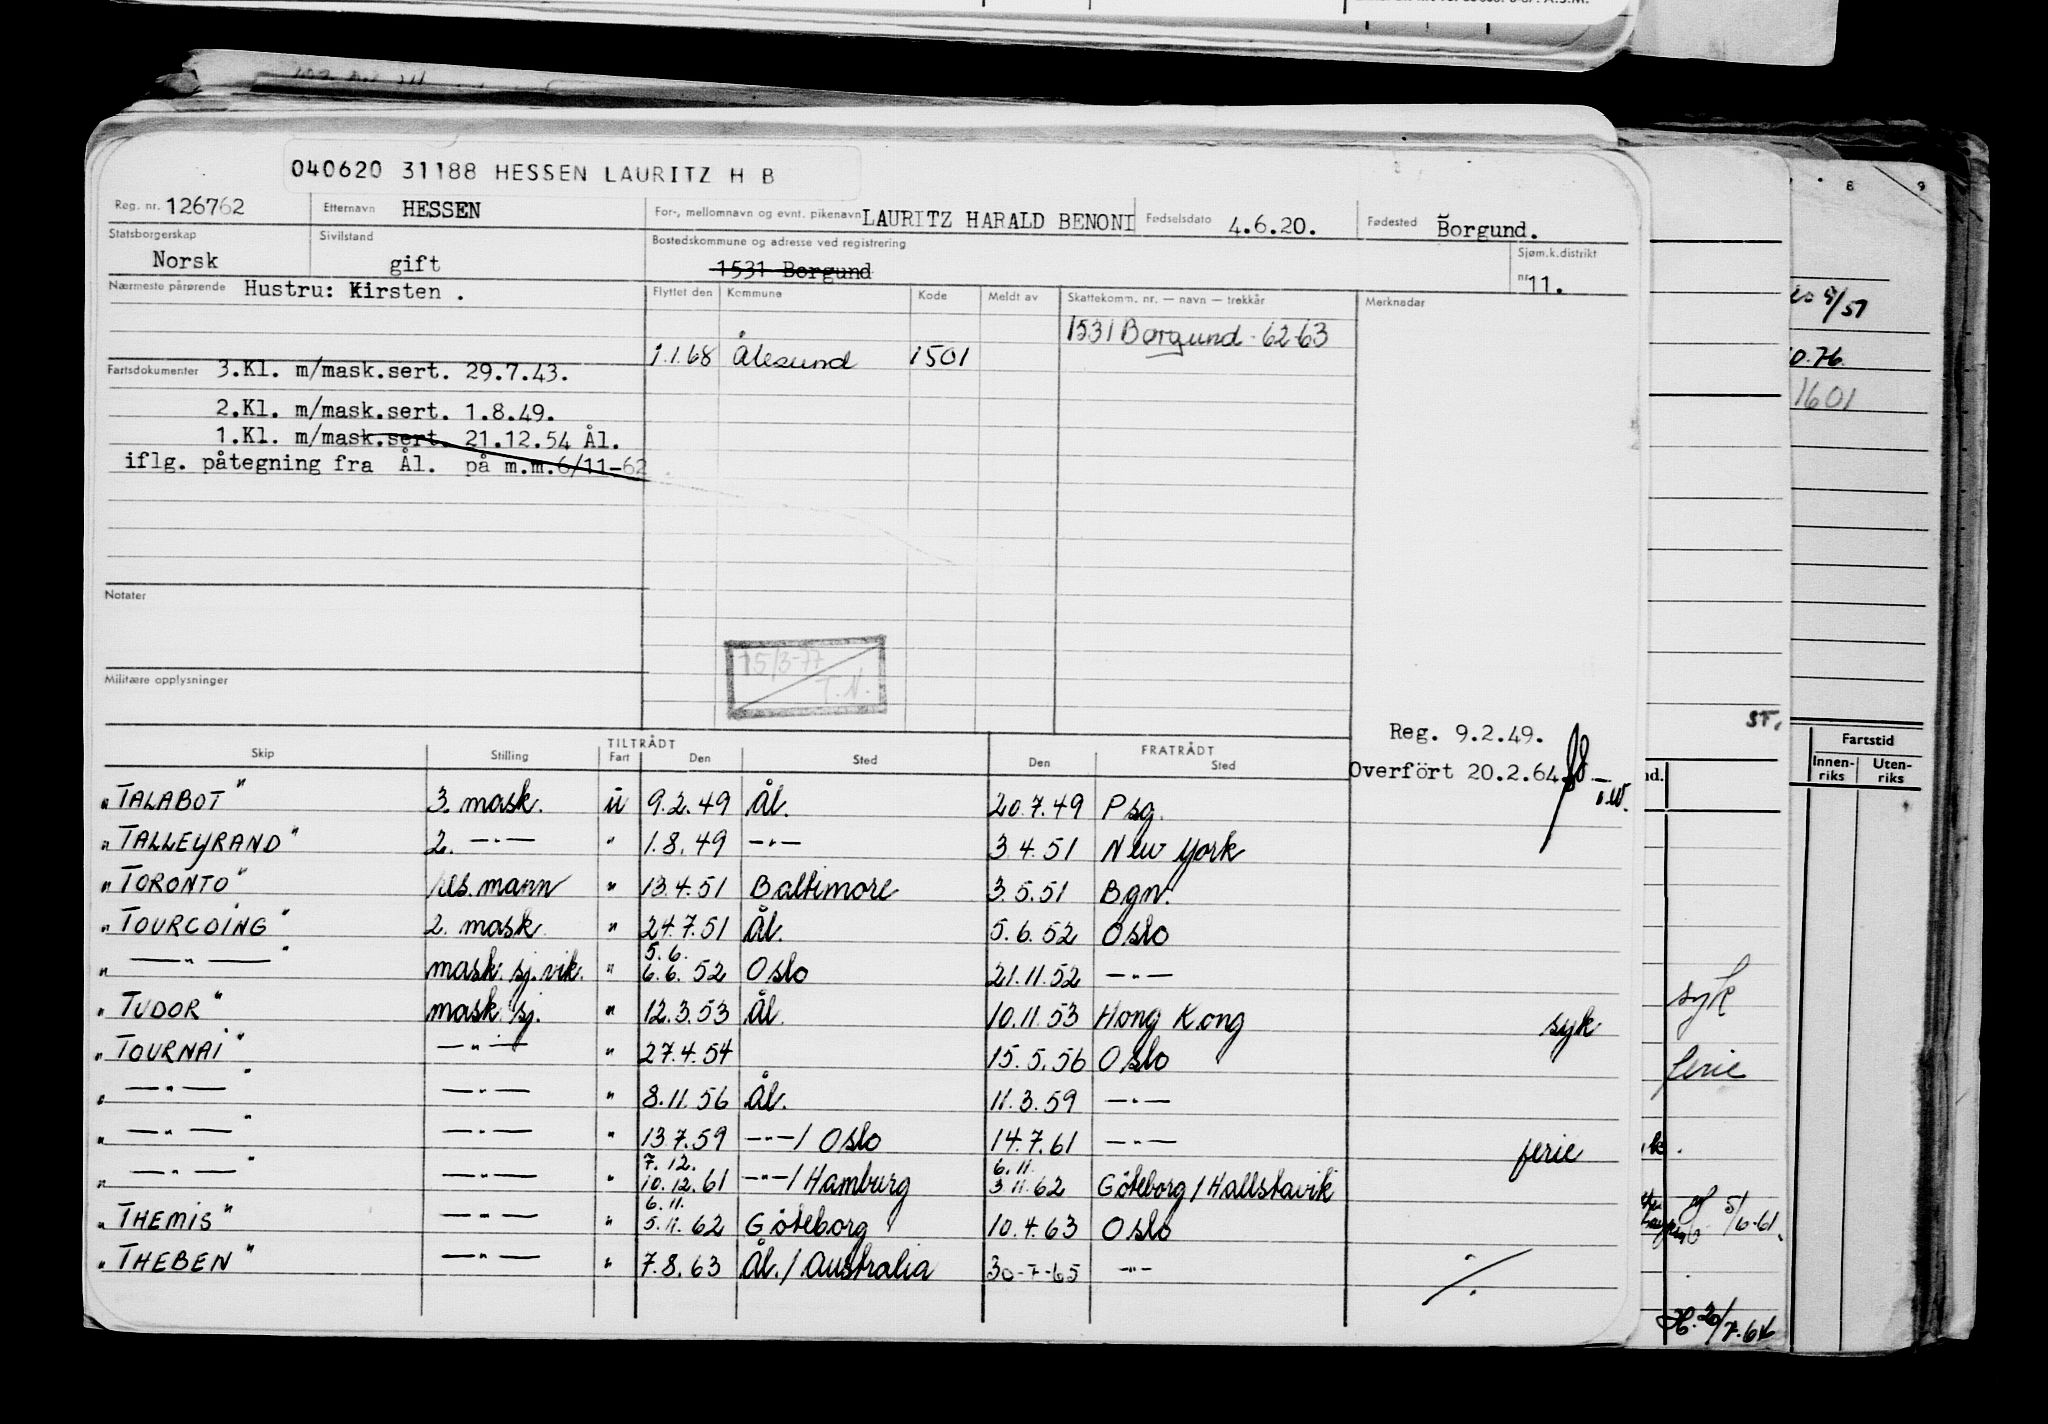 040620 31188 HESSEN LAURITZ H B
Reg. nr. 126762 Etternavn HESSEN For-, mellomnavn og evnt. pikenavn LAURITZ HARALD BENONI Fødselsdato 4.6.20. Fødested Borgund.
Statsborgerskap Norsk Sivilstand gift Bostedskommune og adresse ved registrering 1531 Borgund Sjøm.k.distrikt nr 11.
Nærmeste pårørende Hustru: Kirsten . Flyttet den Kommune Kode Meldt av Skattekomm. nr. — navn — trekkår Merknader
1531 Borgund - 62-63
1.1.68 Ålesund 1501
Fartsdokumenter 3.Kl. m/mask.sert. 29.7.43.
2.Kl. m/mask.sert. 1.8.49.
1.Kl. m/mask.sert. 21.12.54 Ål.
iflg. påtegning fra Ål. på m.m.6/11-62
Notater
15/3-77
T.N.
Militære opplysninger
Reg. 9.2.49.
Overfört 20.2.64
Skip Stilling TILTRÅDT Fart Den Sted FRATRÅDT Den Sted
"TALABOT" 3. mask. u 9.2.49 Ål. 20.7.49 Psg.
"TALLEYRAND" 2. —"— " 1.8.49 —"— 3.4.51 New York
"TORONTO" res. mann " 13.4.51 Baltimore 3.5.51 Bgn.
"TOURCOING" 2. mask " 24.7.51 Ål. 5.6.52 Oslo
" —"— " mask. sj. vik. " 5.6. 6.6.52 Oslo 21.11.52 —"—
"TUDOR" mask sj. " 12.3.53 Ål. 10.11.53 Hong Kong syk
"TOURNAI" —"— " 27.4.54 15.5.56 Oslo
" —"— " —"— " 8.11.56 Ål. 11.3.59 —"—
" —"— " —"— " 13.7.59 —"—/ Oslo 14.7.61 —"— ferie
" —"— " —"— " 7.12. 10.12.61 —"—/ Hamburg 6.11. 3.11.62 Göteborg / Hallstavik
"THEMIS" —"— " 6.11. 5.11.62 Göteborg 10.4.63 Oslo
"THEBEN" —"— " 7.8.63 Ål. / Australia 30-7-65 —"— ./.
8 9
5/57
0.76.
1601
ST.
Fartstid
Innen-riks Uten-riks
nd.
syk
ferie
5/10-61
20/7.66